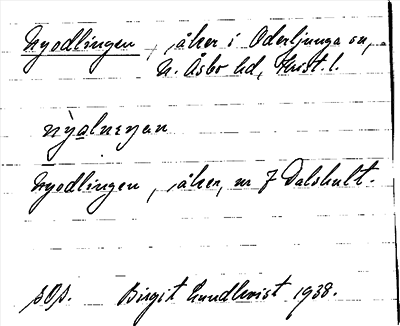 Nyodlingen, åker i Oderljunga sn,
N. Åsbo hd, Krist. l.
nyalneŋen
Nyodlingen, åker, nr 7 Dalshult.
sOs. Birgit Lundkvist 1938.